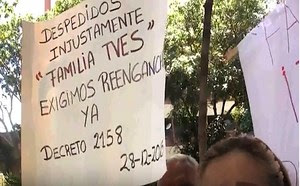 DESPEDIDOS
INJUSTAMENTE
"FAMILIA TVES"
EXIGIMOS REENGANCHE
YA
DECRETO 2158
28-12-20